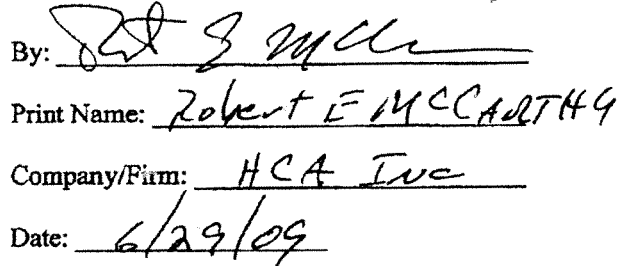 By:
Print Name: Robert E McCARTHY
Company/Firm: HCA Inc
Date: 6/29/09